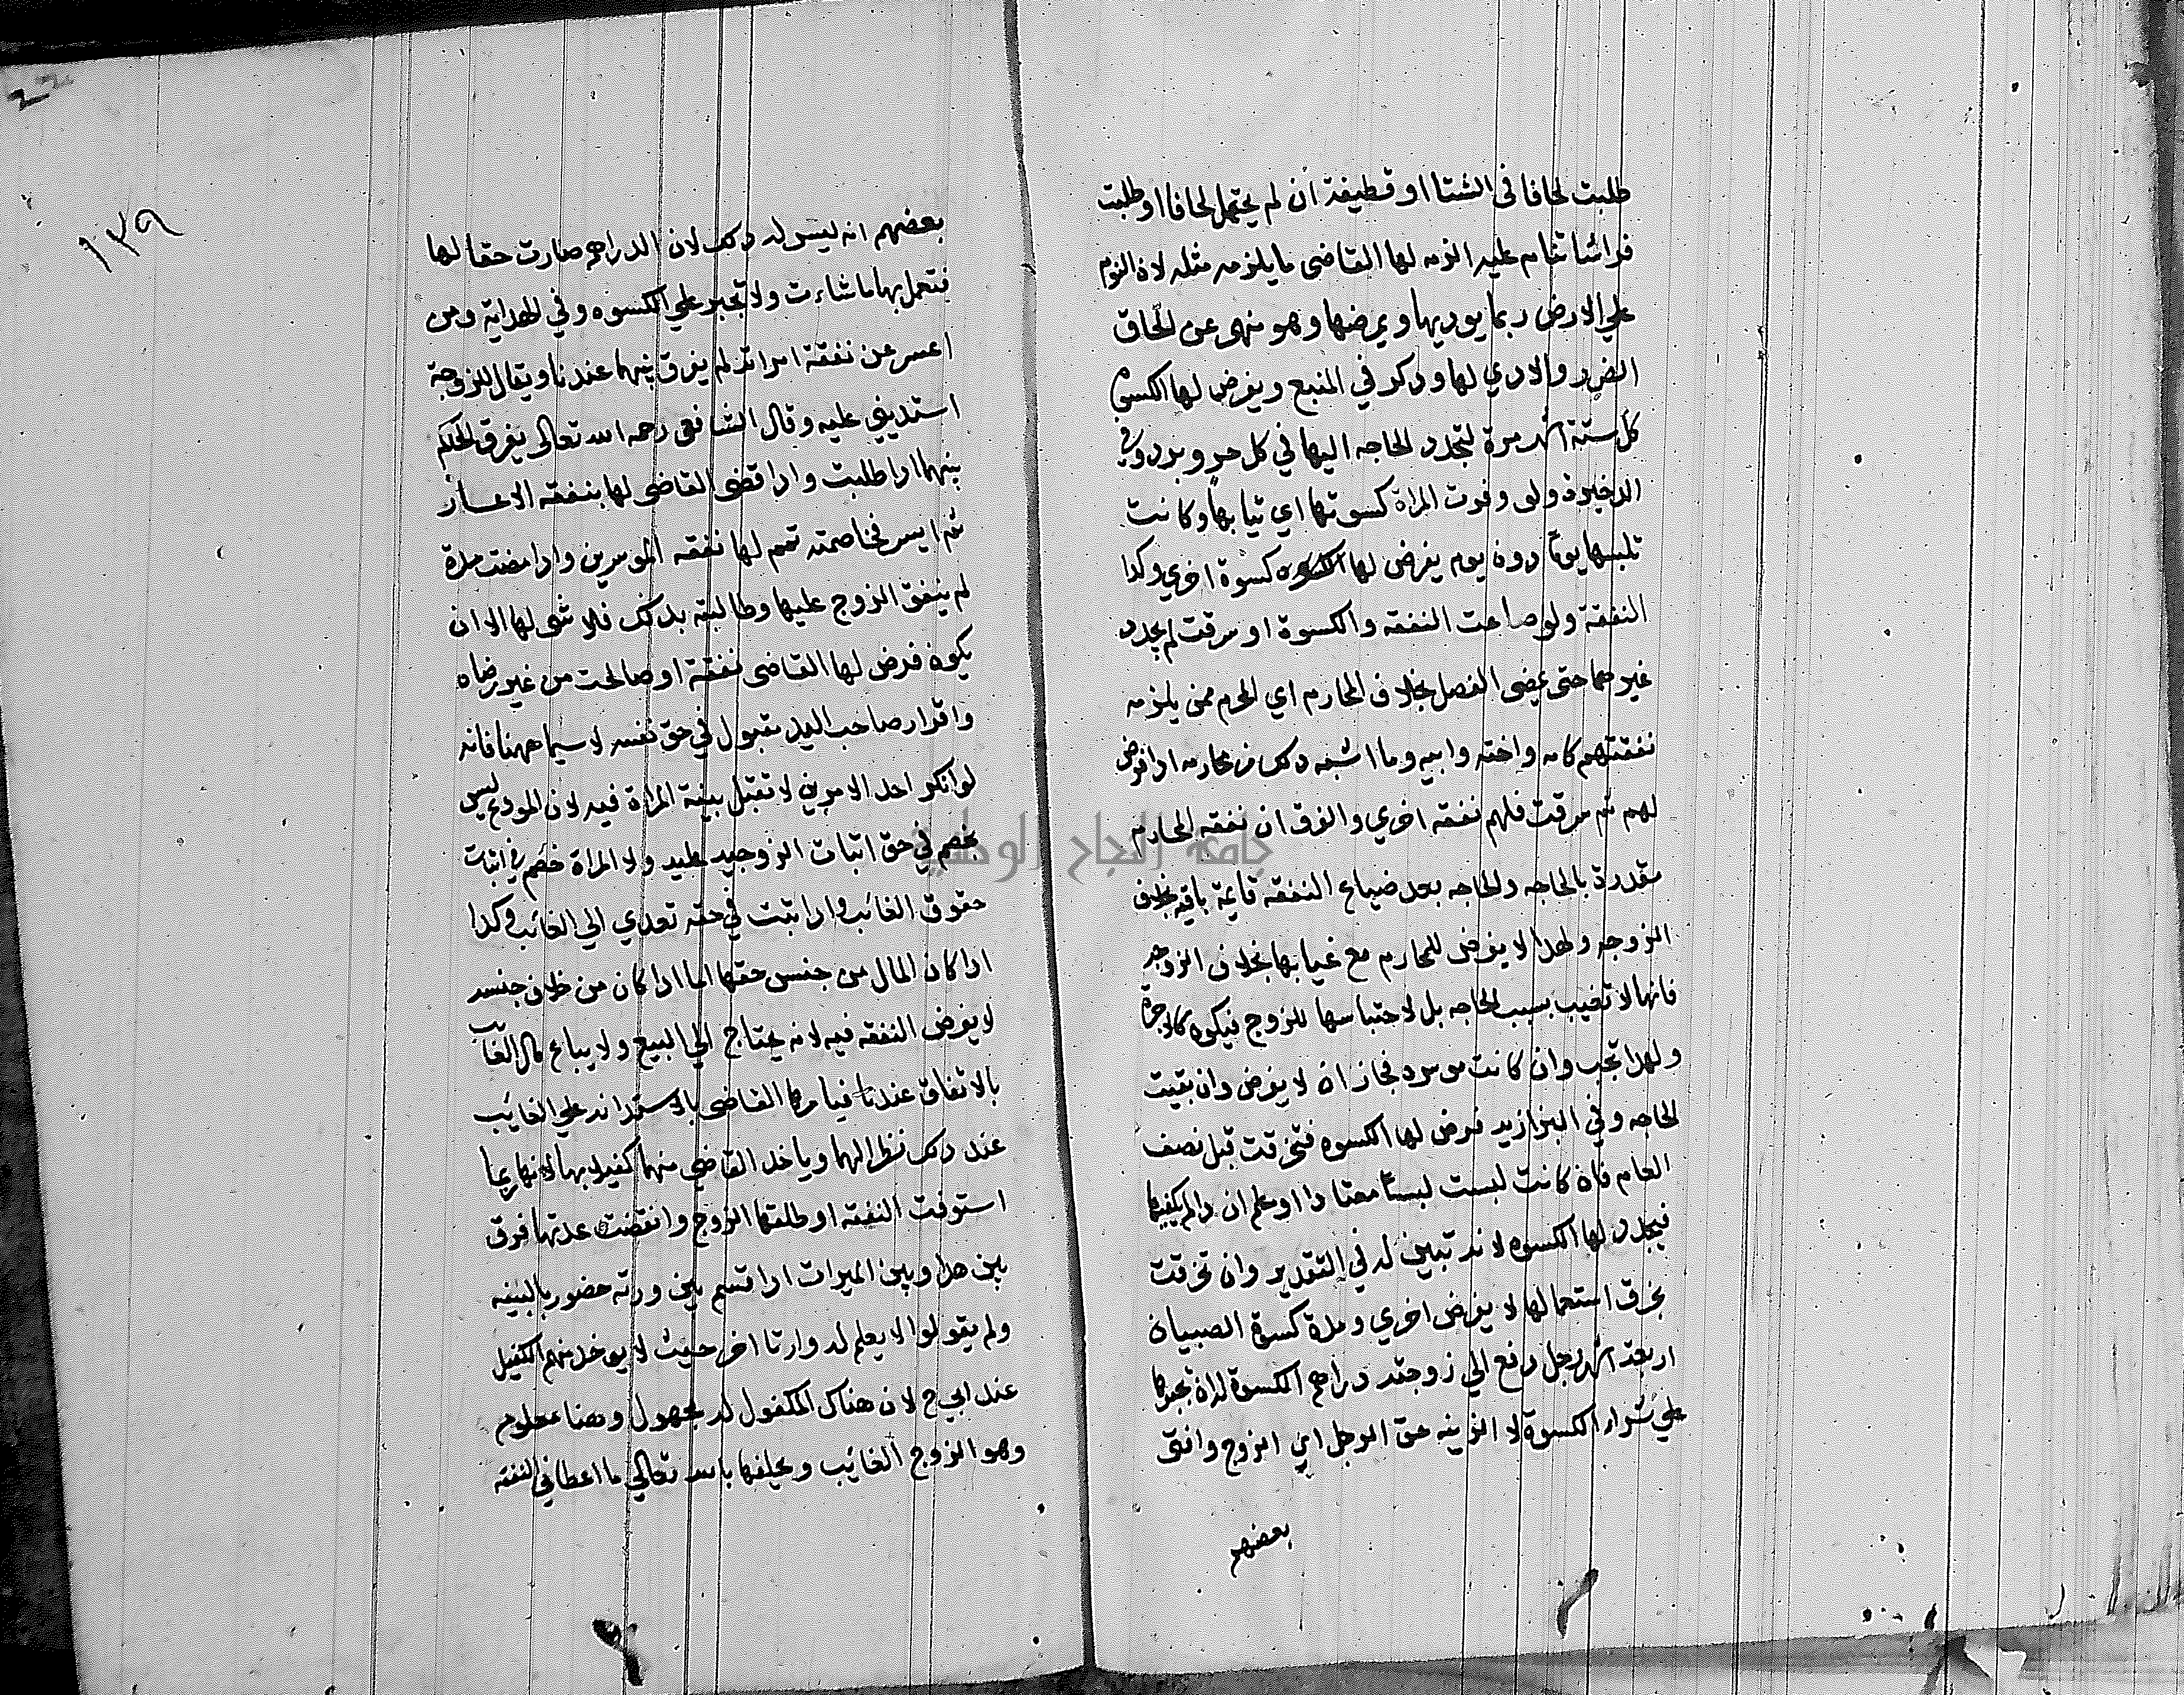 طلبت لحافا في الشتا او قطيفة ان لم يحتمل لحافا او طلبت
فراشا تنام عليه الزمه لها القاضي ما يلزمه مثله لان النوم
علي الارض ربما يوديها ويمرضها وهو منهى عن الحاق
الضرر والادي لها ودكر في المنبع ويفرض لها الكسوة
كل ستة اشهر مرة لتجدد الحاجه اليها في كل حر وبرد وفي
الدخيرة ولو وفرت المراة كسوتها اي ثيابها وكانت
تلبسها يوما دون يوم يفرض لها كسوة اخري وكدا
النفقة ولو ضاعت النفقه والكسوة او سرقت لم يجدد
غيرهما حتى يمضى الفصل بخلاف المحارم اي المحرم ممن يلزمه
نفقتهم كامه واخته وابيه وما اشبه دلك من محارمه ادا فرض
لهم ثم سرقت فلهم نفقه اخري والفرق ان نفقه المحارم
مقدرة بالحاجه والحاجه بعد ضياع النفقه قايمة باقيه بخلاف
الزوجه ولهدا لا يفرض للمحارم مع غيابها بخلاف الزوجه
فانها لا تجب بسبب الحاجه بل لاحتباسها للزوج فيكون كالاجرة
ولهدا تجب وان كانت موسره فجاز ان لا يفرض وان بقيت
الحاجه وفي البزازيه فرض لها الكسوه فتخرقت قبل نصف
العام فان كانت لبست لبسا معتادا او علم ان دا لم يكفيها
فيجدد لها الكسوه لانه تبين له في التقدير وان تخرقت
بخرق استعمالها لا يفرض اخري ومدة كسوة الصبيان
اربعة اشهر رجل دفع الي زوجته دراهم الكسوة له ان يجبرها
علي شراء الكسوة لا الزينه حق الرجل اي الزوج وافتى
بعضهم
١٣٩
بعضهم انه ليس له دلك لان الدراهم صارت حقا لها
فتعمل بها ما شاءت ولا تجبر علي الكسوه وفي الهداية ومن
اعسر عن نفقة امراته لم يفرق بينهما عندنا ويقال للزوجة
استديني عليه وقال الشافعي رحمه الله تعالى يفرق الحاكم
بينهما ادا طلبت وادا قضى القاضي لها بنفقه الاعسار
ثم ايسر فخاصمته تمم لها نفقه الموسرين وادا مضت مدة
لم ينفق الزوج عليها وطالبته بدلك فلا شي لها الا ان
يكون فرض لها القاضي نفقة او صالحت من غير رضاه
واقرار صاحب اليد مقبول في حق نفسه لا سيما ههنا فانه
لو انكر احد الامرين لا تقبل بينة المراة فيه لان المودع ليس
بخصم في حق اثبات الزوجيه عليه ولا المراة خصم في اثبات
حقوق الغائب وادا ثبت في حقه تعدي الي الغائب وكدا
ادا كان المال من جنس حقها اما ادا كان من خلاف جنسه
لا يفرض النفقه فيه لانه يحتاج الي البيع ولا يباع مال الغايب
بالاتفاق عندنا فيامرها القاضي بالاستدانه علي الغايب
عند دلك نظرا لهما وياخد القاضي منها كفيلا بها لانها ربما
استوفت النفقه او طلقها الزوج وانقضت عدتها فرق
بين هدا وبين الميراث ادا قسم بين ورثه حضور بالبينه
ولم يقولوا لا يعلم له وارثا اخر حيث لا يوخد منهم الكفيل
عند ابي ح لان هناك المكفول له مجهول وهنا معلوم
وهو الزوج الغايب ويحلفها بالله تعالي ما اعطاني النفقه
جامعة النجاح الوطنية